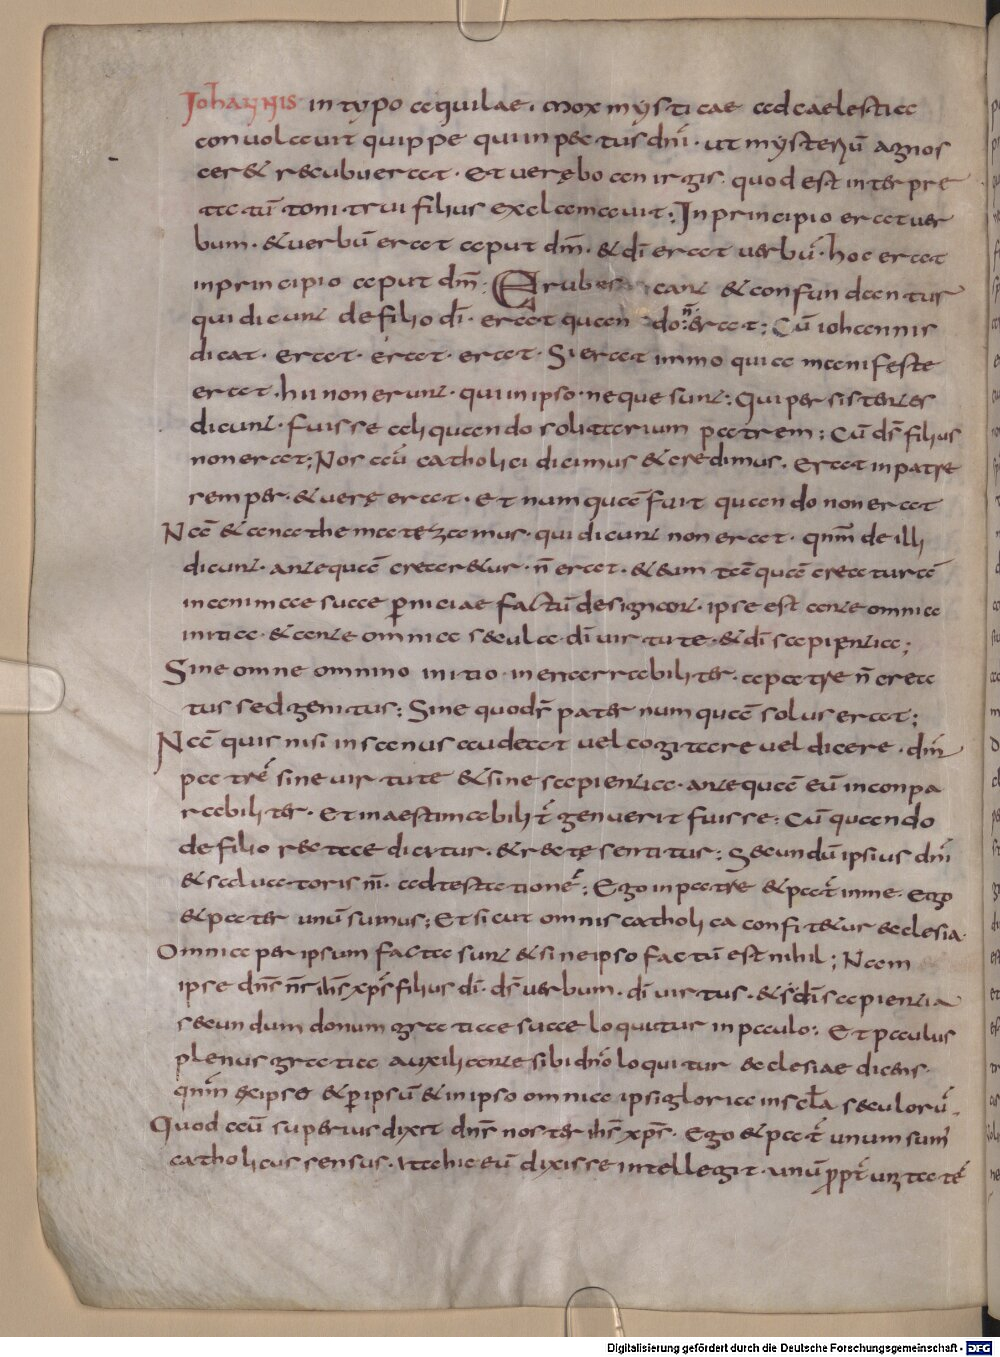 Johannis in typo aquilae. mox mysticae ad caelestia
conuolauit quippe qui in pectus dnī. ut mysteriū agnos
cer& recubuerat. Et uerębo anirgis. quod est interpre
tatū tonitrui filius exclamauit; In principio erat uer
bum. & uerbū erat aput dm̄. & dī erat uerbū. hoc erat
in principio aput dm̄. Erubescant & confundantur
qui dicunt de filio dī. erat quando n̄ erat; Cū iohannis
dicat. erat. erat. erat. Si erat immo quia manifeste
erat. hii non erunt. qui in ipso neque sunt; Qui persistentes
dicunt. fuisse aliquando solitarium patrem; Cū ds̄ filius
non erat; Nos aū catholici dicimus & credimus. Erat in patre
semper. & uerę erat. et numquā fuit quando non erat
Nā & anathematezamus. qui dicunt non erat. qnm̄ de illi
dicunt. antequā crearetur. n̄ erat. & eum tāquā creaturā
in anima sua p̄niciae factū designant. ipse est ante omnia
initia. & ante omnia saecula. dī uirtute. & dī sapientia;
Sine omne omnino initio. inenarrabiliter. a patre n̄ crea
tus sed genitus; Sine quodr̄ pater numquā solus erat;
Nā quis nisi insanus audeat uel cogitare uel dicere. dm̄
patrē sine uirtute & sine sapientia. antequā eū inconpa
rabiliter. Et inaestimabilit̄ genuerit fuisse; Cū quando
de filio recte dicitur. & rectę sentitur; Secundū ipsius dnī
& saluatoris n̄i. ad testationē; Ego in patre & pat̄ in me. Ego
& pater unū sumus; Et sicut omnis catholica confitetur aeclesia.
Omnia per ipsum facta sunt & sine ipso factū est nihil; Nam
ipse dn̄s n̄r ih̄s xp̄s filius dī. ds̄ uerbum. dī uirtus. & dī sapientia
secundum donum gratiae suae loquitur in paulo; Et paulus
plenus gratia auxiliante sibi dn̄o loquitur aeclesiae dicens.
qnm̄ ex ipso & p̄ ipsū & in ipso omnia ipsi gloria in sc̄la seculorū.
Quod aū superius dixit dn̄s noster ih̄s xp̄s. Ego & pat̄ unum sum̄
catholicus sensus. ita hic eū dixisse intellegit. unū pp̄t̄ unitatē
Digitalisierung gefördert durch die Deutsche Forschungsgemeinschaft - DFG